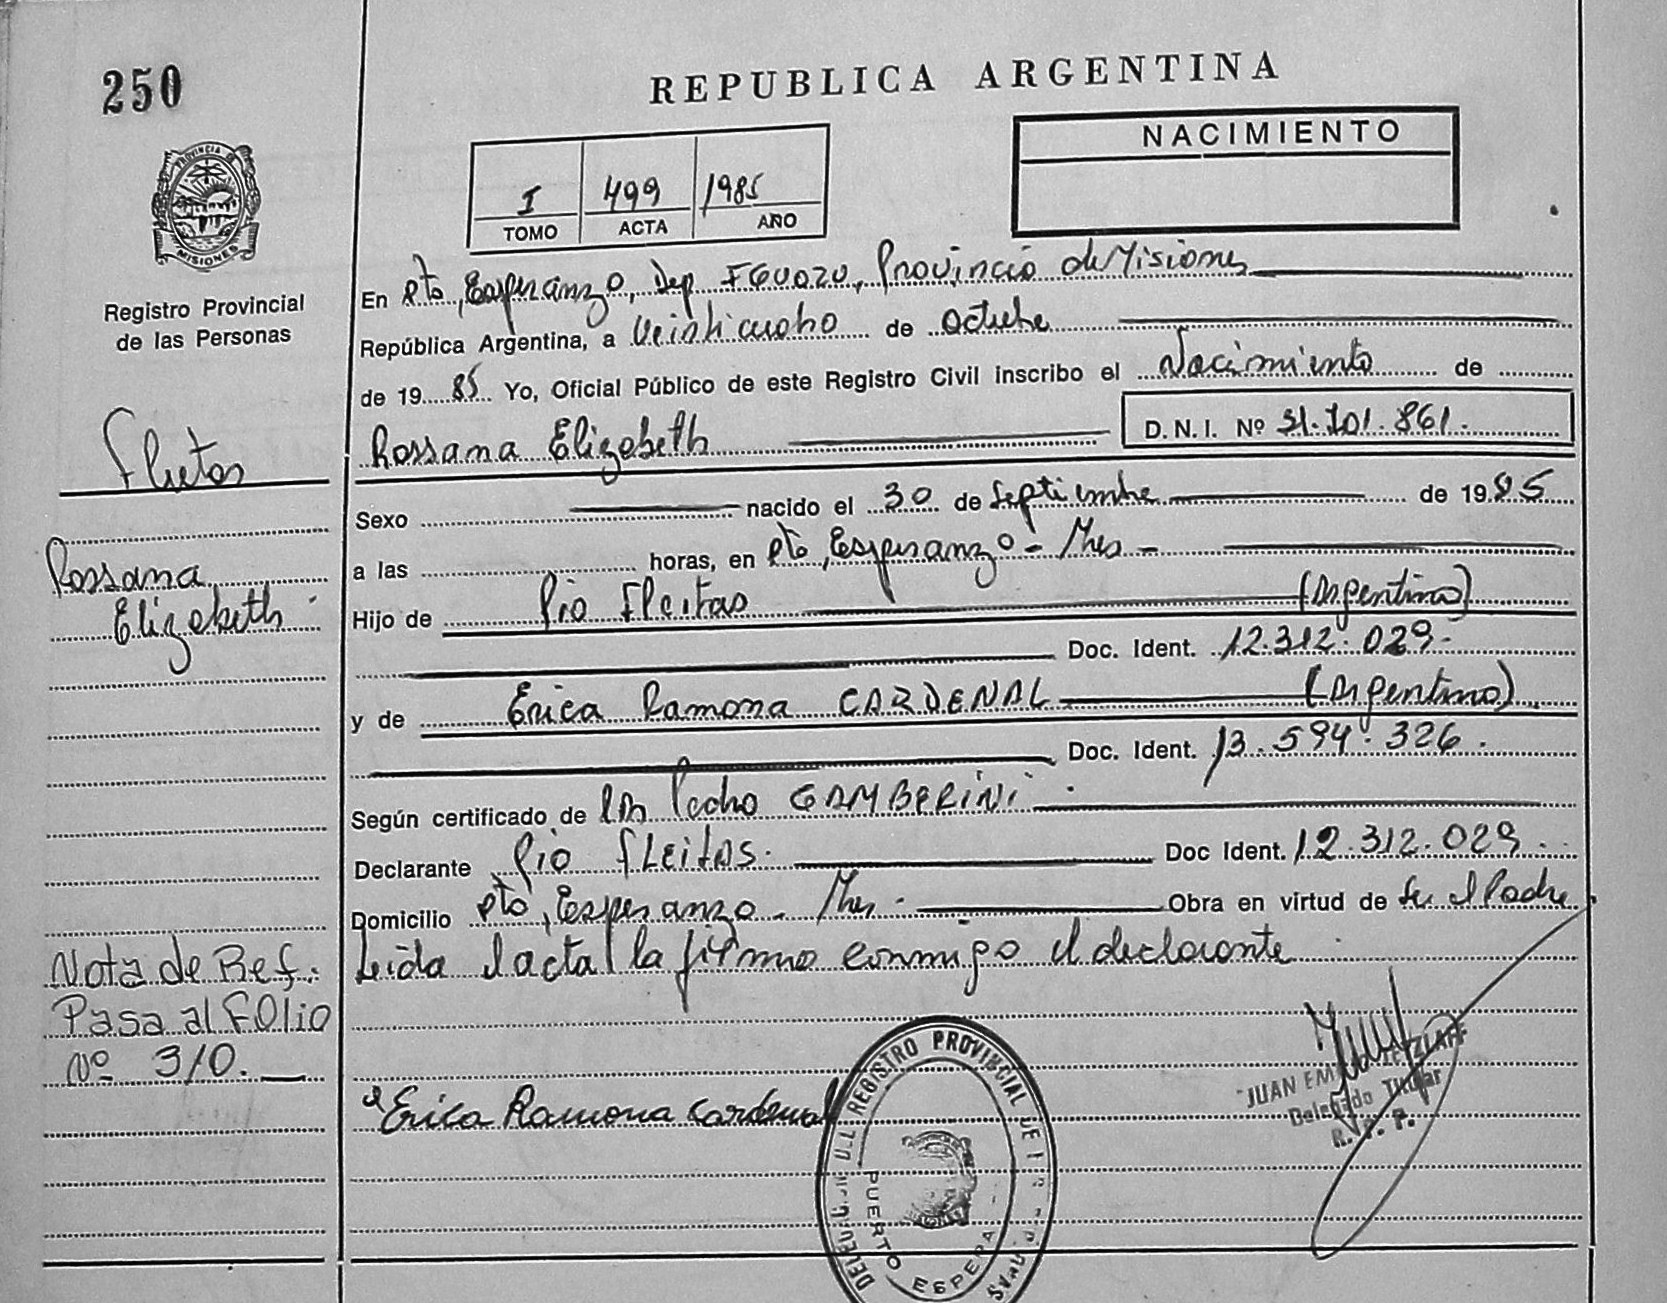 250
REPUBLICA ARGENTINA
NACIMIENTO
I 499 1985
TOMO ACTA AÑO
PROVINCIA DE
MISIONES
Registro Provincial
de las Personas
En Pto, Esperanza, Dep. IGUAZU, Provincia de Misiones
República Argentina, a Veisticuatro de octubre
de 1985 Yo, Oficial Público de este Registro Civil inscribo el Nacimiento de
Rossana Elizabeth D.N.I. Nº 31.701.861.
Sexo nacido el 30 de Septiembre de 1985
a las horas, en Pto, Esperanza - Mnes -
Hijo de Pio Fleitas (Argentino)
Doc. Ident. 12.312.029.
y de Erica Ramona CARDENAL (Argentina)
Doc. Ident. 13.594.326.
Según certificado de Dr Pedro GAMBERINI
Declarante Pio Fleitas. Doc Ident. 12.312.029.
Domicilio Pto, Esperanza - Mnes. Obra en virtud de Ser el Padre
Leida el acta la firma conmigo el declarante
Fleitas
Rossana
Elizabeth
Nota de Ref.:
Pasa al Folio
Nº 310.
Erica Ramona Cardenal
REGISTRO PROVINCIAL DE
PUERTO ESPERA
JUAN
Delegado Titular
R. P. P.